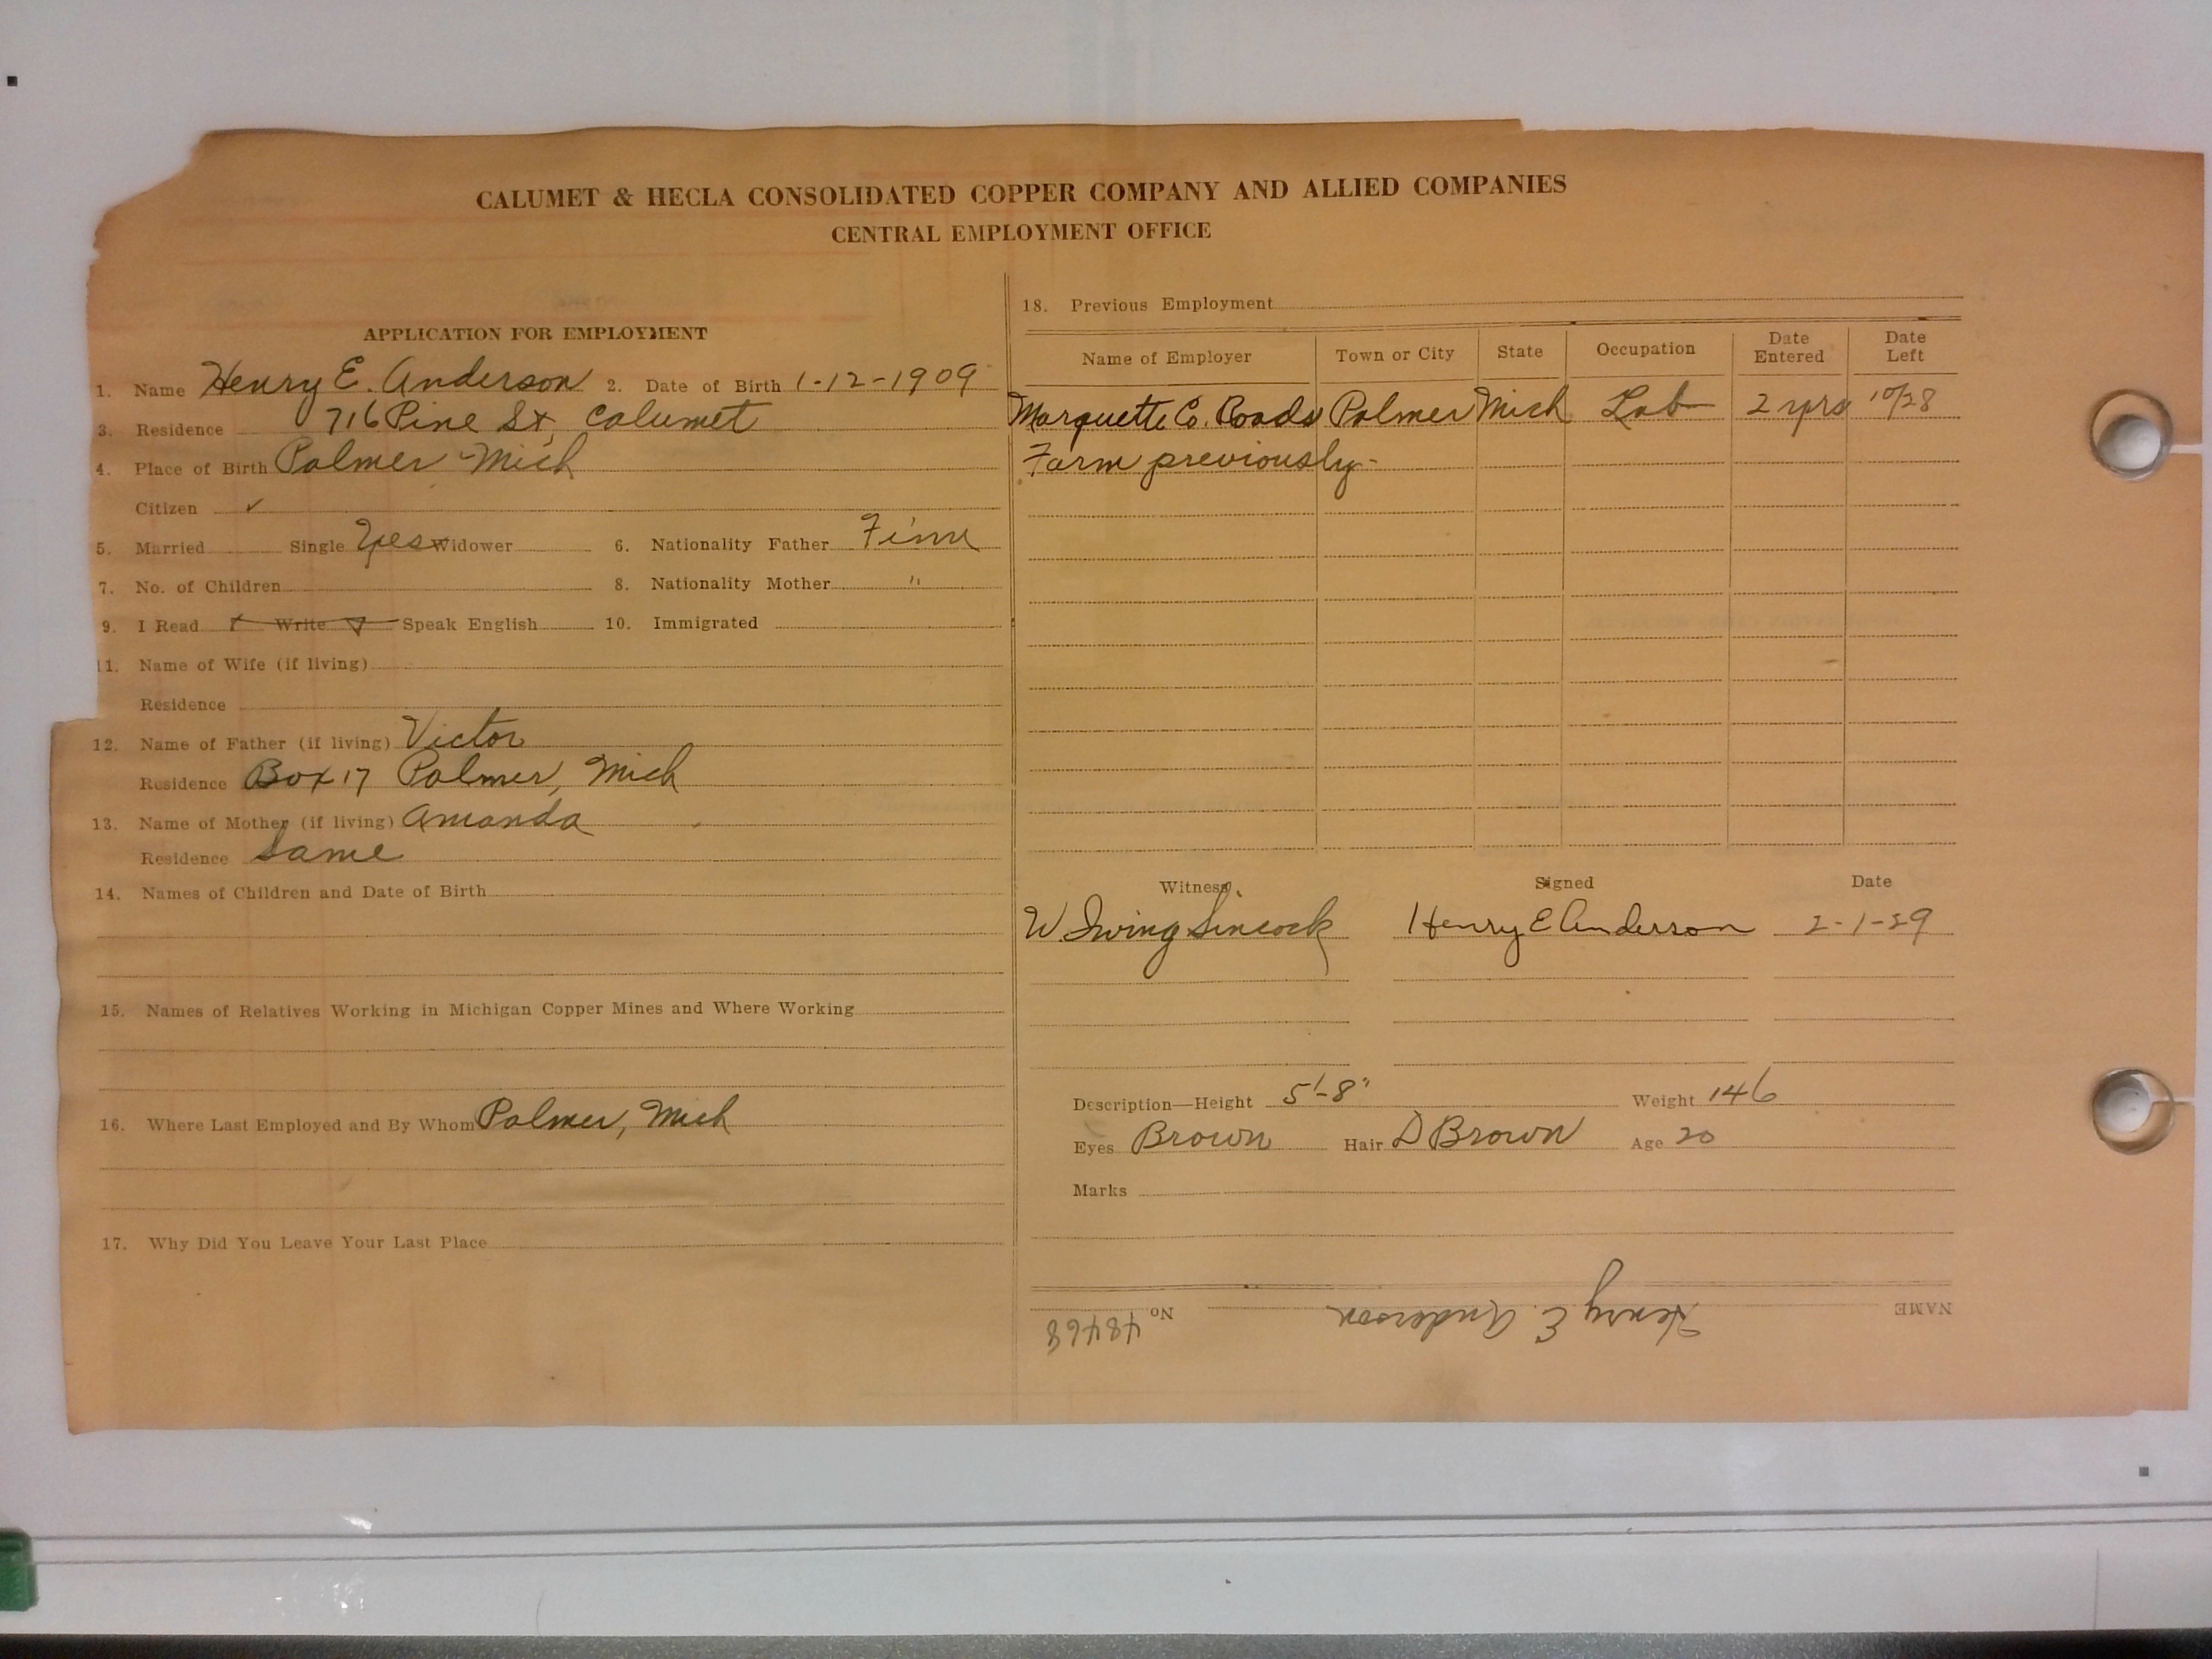 CALUMET & HECLA CONSOLIDATED COPPER COMPANY AND ALLIED COMPANIES
CENTRAL EMPLOYMENT OFFICE
APPLICATION FOR EMPLOYMENT
1. Name Henry E. Anderson 2. Date of Birth 1-12-1909
3. Residence 716 Pine St, Calumet
4. Place of Birth Palmer Mich
Citizen ✓
5. Married Single Yes Widower 6. Nationality Father Finn
7. No. of Children 8. Nationality Mother "
9. I Read Write Speak English 10. Immigrated
11. Name of Wife (if living)
Residence
12. Name of Father (if living) Victor
Residence Box 17 Palmer, Mich
13. Name of Mother (if living) Amanda
Residence Same
14. Names of Children and Date of Birth
15. Names of Relatives Working in Michigan Copper Mines and Where Working
16. Where Last Employed and By Whom Palmer, Mich
17. Why Did You Leave Your Last Place
18. Previous Employment
Name of Employer Town or City State Occupation Date Entered Date Left
Marquette Co. Roads Palmer Mich Lab 2 yrs 10/28
Farm previously-
Witness Signed Date
W. Irving Sincock Henry E Anderson 2-1-29
Description—Height 5'-8" Weight 146
Eyes Brown Hair D Brown Age 20
Marks
NAME Henry E. Anderson No 48468